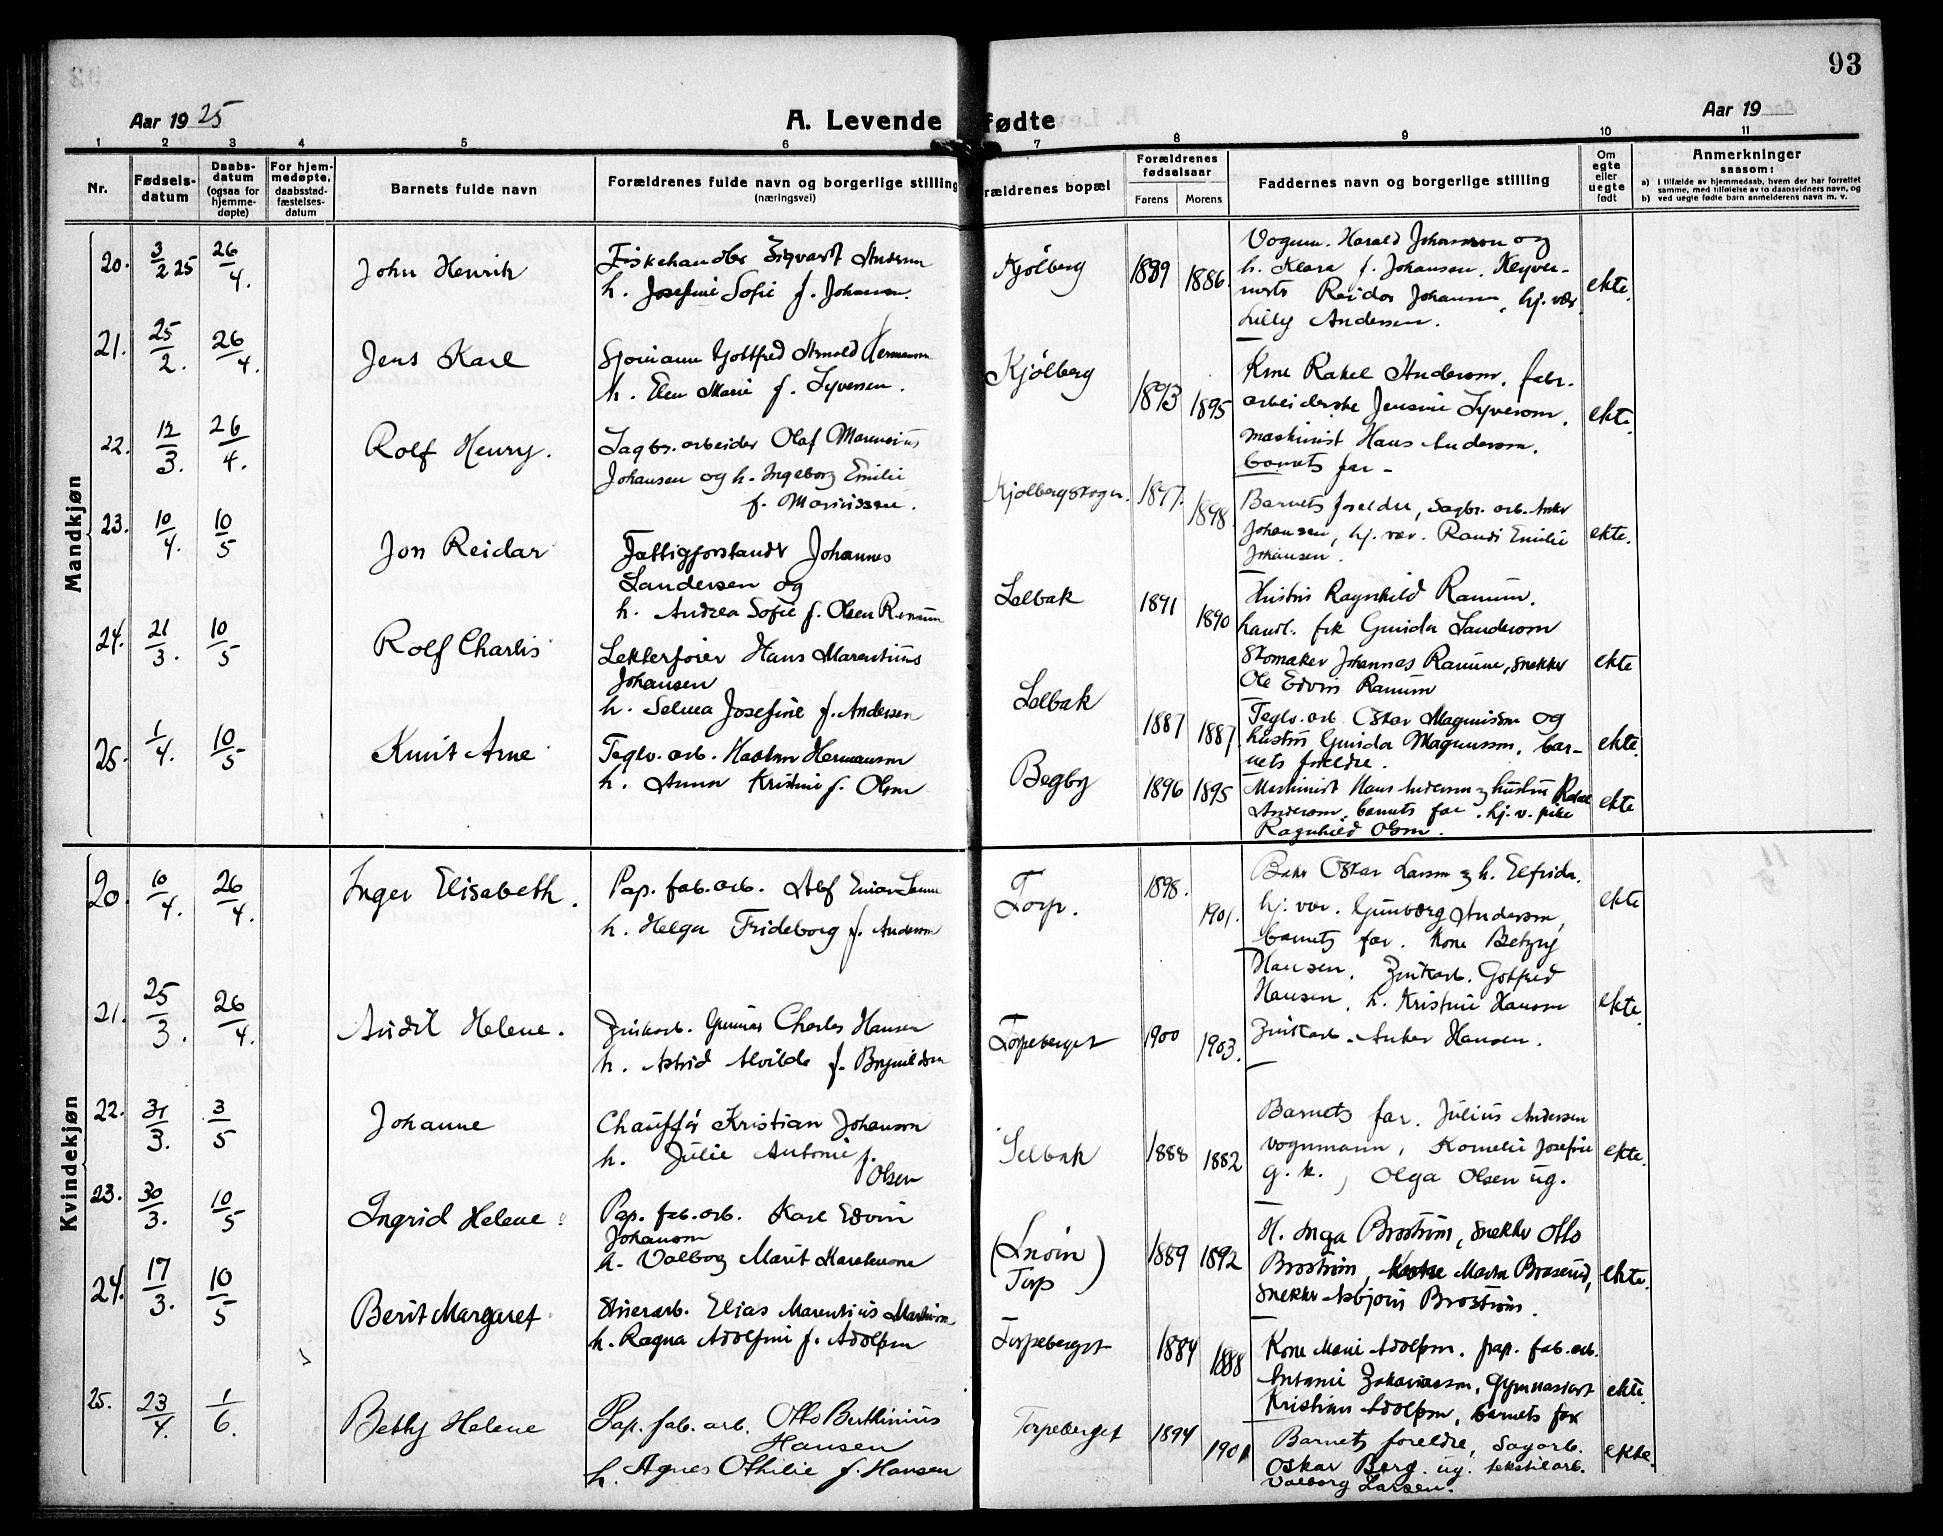 93
Aar 1925
A. Levende fødte
Aar 19
1 2 3 4 5 6 7 8 9 10 11
Nr.
Fødsels-
datum
Daabs-
datum
(ogsaa for
hjemme-
døpte)
For hjem-
medøpte,
daabsstad-
fæstelses-
datum
Barnets fulde navn
Forældrenes fulde navn og borgerlige stilling
(næringsvei)
rældrenes bopæl
Forældrenes
fødselsaar
Farens Morens
Faddernes navn og borgerlige stilling
Om
egte
eller
uegte
født
Anmerkninger
saasom:
a) i tilfælde av hjemmedaab, hvem der har forrettet
samme, med tilføielse av to daabsvidners navn, og
b) ved uegte fødte barn anmelderens navn m. v.
Mandkjøn
20. 3/2 25 26/4. John Henrik
Fiskehandler Sigvart Andersen
h. Josefine Sofie f. Johansen.
Kjølberg 1889 1886.
Vognm. Harald Johansson og
h. Klara f. Johansen.
Reidar Johansen, hj. vær.
Lilly Andersen.
ekte.
21. 25/2. 26/4. Jens Karl
Gottfred Arnold Hermansen
h. Elen Marie f. Syversen.
Kjølberg 1893 1895
Kone Rakel Anderson, fabr.
arbeiderske Jensine Syverson,
maskinist Hans Anderson.
barnets far –
ekte.
22. 12/3. 26/4. Rolf Henry.
Sagbr. arbeider Olaf Marensius
Johansen og h. Ingeborg Emilie
f. Marinissen.
Kjølbergskogen. 1897. 1898.
Barnets foreldre, sagbr. arb. Anker
Johansen, hj. vær. Randi Emilie
Johansen.
ekte.
23. 10/4. 10/5 Jon Reidar
Fattigforstander Johannes
Sandersen og
h. Andrea Sofie f. Olsen Ramum
Selbak 1891 1890
Hustru Ragnhild Ramum.
handl. frk Gunda Sanderson
Skomaker Johannes Ramum, snekker
Ole Edvin Ramum
ekte
24. 21/3. 10/5 Rolf Charlis
Lekterfører Hans Marentius
Johansen
h. Selma Josefine f. Andersen
Selbak 1887 1887
Teglv. arb. Oskar Magnusson og
hustru Gunda Magnusson, bar-
nets foreldre.
ekte.
25. 1/4. 10/5 Knut Arne
Teglv. arb. Hermanson
h. Anna Kristine f. Olsen
Begby 1896 1895
Maskinist Hans Anderson og hustru Rakel
Anderson, barnets far, hj. v. pike
Ragnhild Olsen.
ekte
Kvindekjøn
20. 10/4. 26/4. Inger Elisabeth.
Pap. fab. arb. Alf Einar
h. Helga Frideborg f. Anderson
Torp. 1898. 1901.
Baker Oskar Larsen og h. Elfrida.
hj. vær. Gunborg Anderson,
barnets far. Kone Betzy
Hansen, Zinkarb. Gotfred
ekte
21. 25/3. 26/4. Audil Helene.
Zinkarb. Gunnar Charles Hansen
h. Astrid Alvilde f. Brynildsen
Torpeberget 1900 1903.
Hansen, h. Kristine Hansen
Zinkarb. Anker Hansen.
ekte.
22. 31/3. 3/5 Johanne
Chauffør Kristian Johanson
h. Julie Antonie f.
Olsen
Selbak 1888 1882
Barnets far. Julius Andersen
vognmann, Kornelie Josefine
g. k., Olga Olsen ug.
ekte.
23. 30/3. 10/5 Ingrid Helene
Pap. fab. arb. Karl Edvin
Johanson
h. Valborg Marit
Torp 1889 1892
H. Inga Brostrøm, snekker Otto
Brostrøm, Marta Braserud,
snekker Asbjørn Brostrøm.
ekte.
24. 17/3. 10/5 Berit Margaret
Elias Marentius
h. Ragna Adolfine f. Adolfsen
Torpeberget 1884 1888
Kone Marie Adolfsen, pap. fab. arb.
Antonie Zakariasson,
Kristian Adolfsen, barnets far
ekte.
25. 23/4. 1/6. Bethy Helene
Pap. fab. arb. Otto Berthinius
Hansen
h. Agnes Othilie f. Hansen
Torpeberget 1894 1901
Barnets foreldre, Sagarb.
Oskar Berg. ug. tekstilarb.
Valborg Larsen.
ekte.